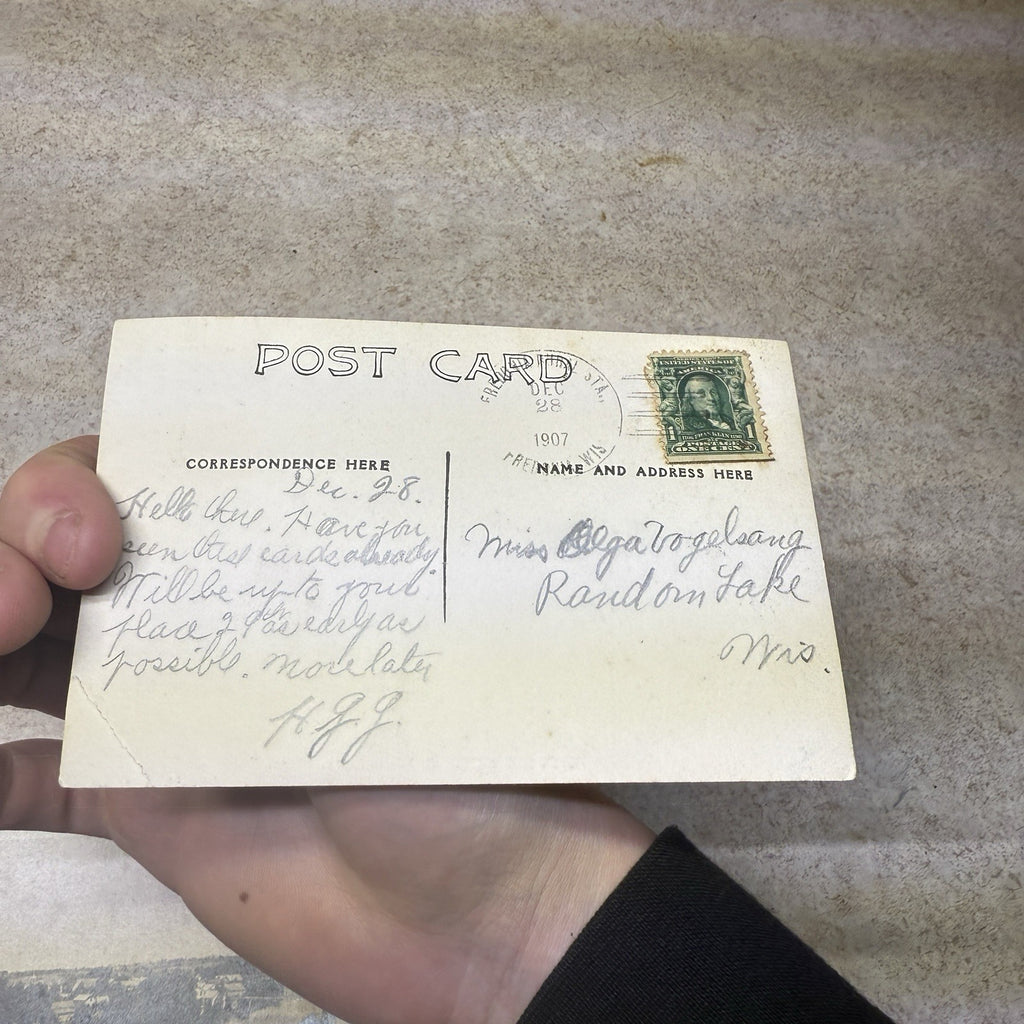 POST CARD
FREDONIA STA.
DEC
28
1907
FREDONIA WIS
UNITED STATES OF
AMERICA
1 1
POSTAGE
ONE CENT
CORRESPONDENCE HERE
NAME AND ADDRESS HERE
Dec. 28.
Hello there. Have you
seen these cards already.
Will be up to your
place 29th as early as
possible. more later
H.G.G.
Miss Olga Vogelsang
Random Lake
Wis.